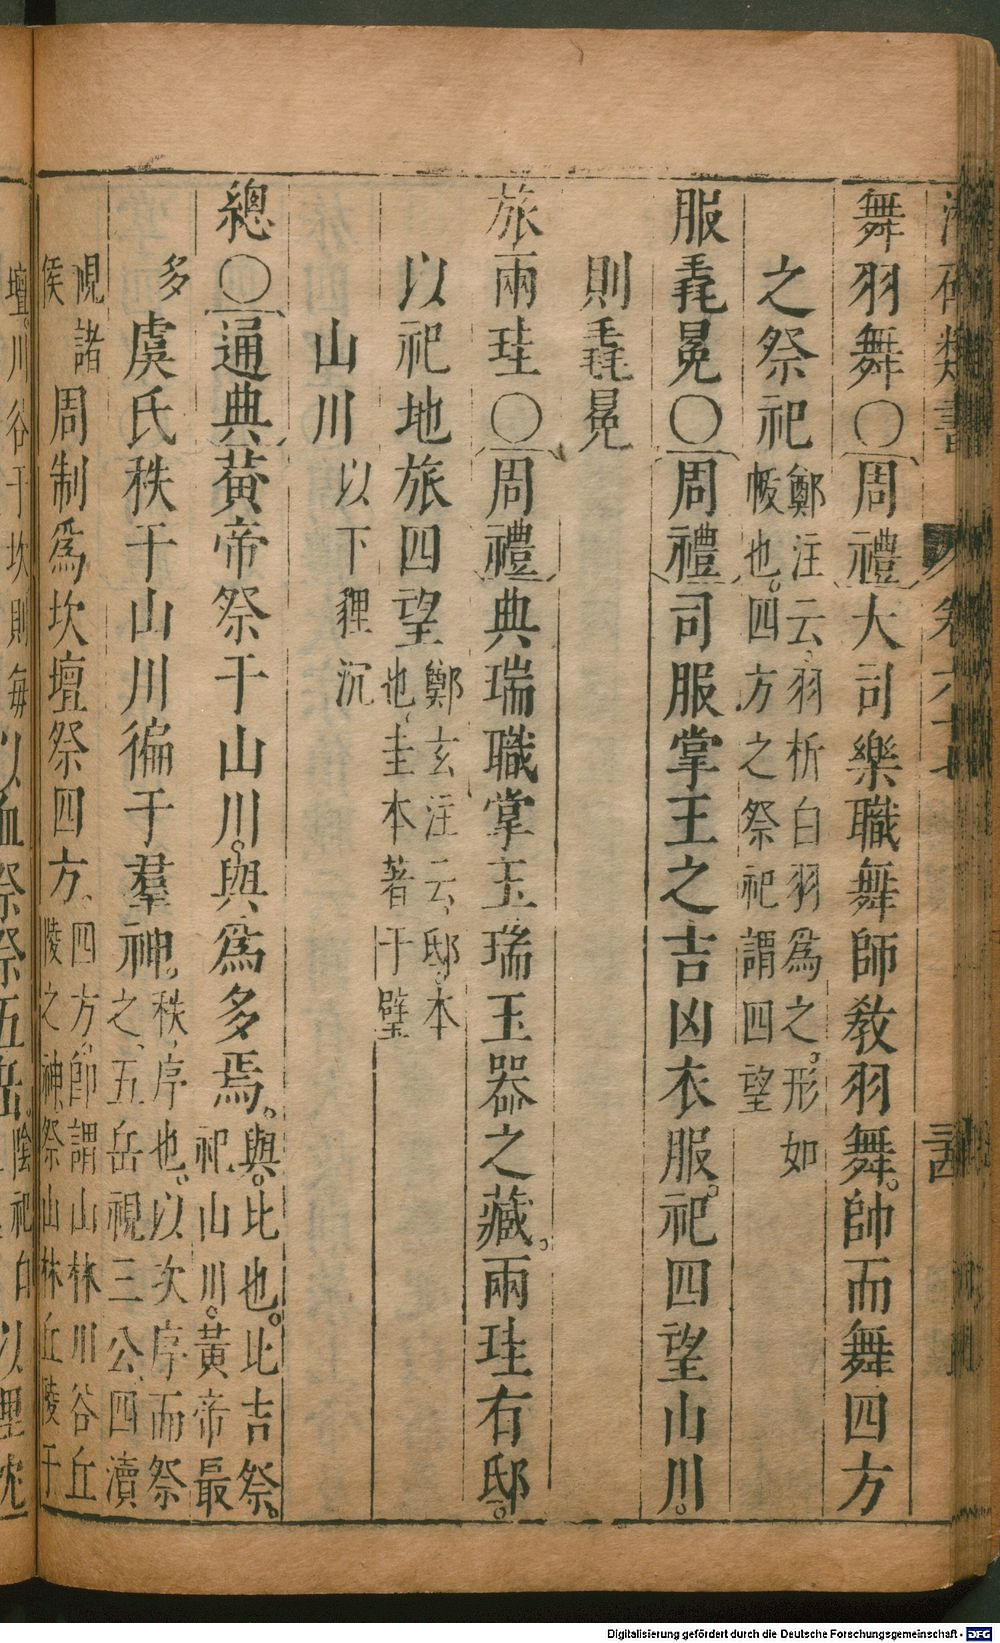 類書 卷六十七 三四
舞羽舞〇周禮大司樂職舞師教羽舞帥而舞四方
之祭祀鄭注云羽析白羽爲之形如
帗也四方之祭祀謂四望
服毳冕〇周禮司服掌王之吉凶衣服祀四望山川
則毳冕
旅兩珪〇周禮典瑞職掌玉瑞玉器之藏兩珪右邸
以祀地旅四望鄭玄注云邸本
也圭本著于璧
山川以下貍沉
總〇通典黃帝祭于山川與爲多焉與比也比吉祭
祀山川黃帝最
多虞氏秩于山川徧于羣神秩序也以次序而祭
之五岳視三公四瀆
視諸
侯周制爲坎壇祭四方四方卽謂山林川谷丘
陵之神祭山林丘陵于
壇川谷于坎則每以血祭祭五岳陰祀自以貍沈
Digitalisierung gefördert durch die Deutsche Forschungsgemeinschaft - DFG